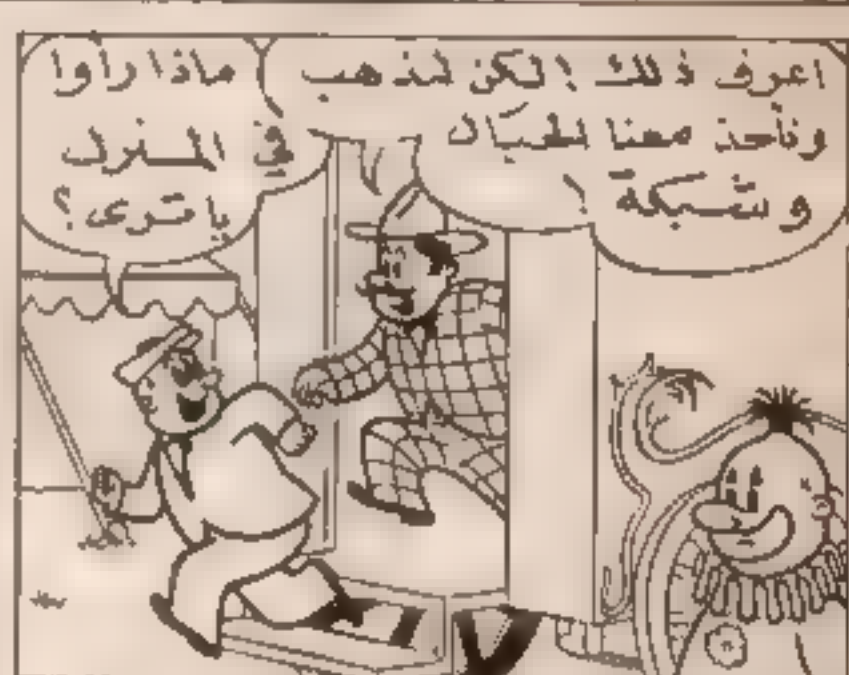 اعرف ذلك ! لكن لنذهب
ونأخذ معنا لحبال
و شبكة !
ماذا راوا
في المنزل
يا ترى ؟